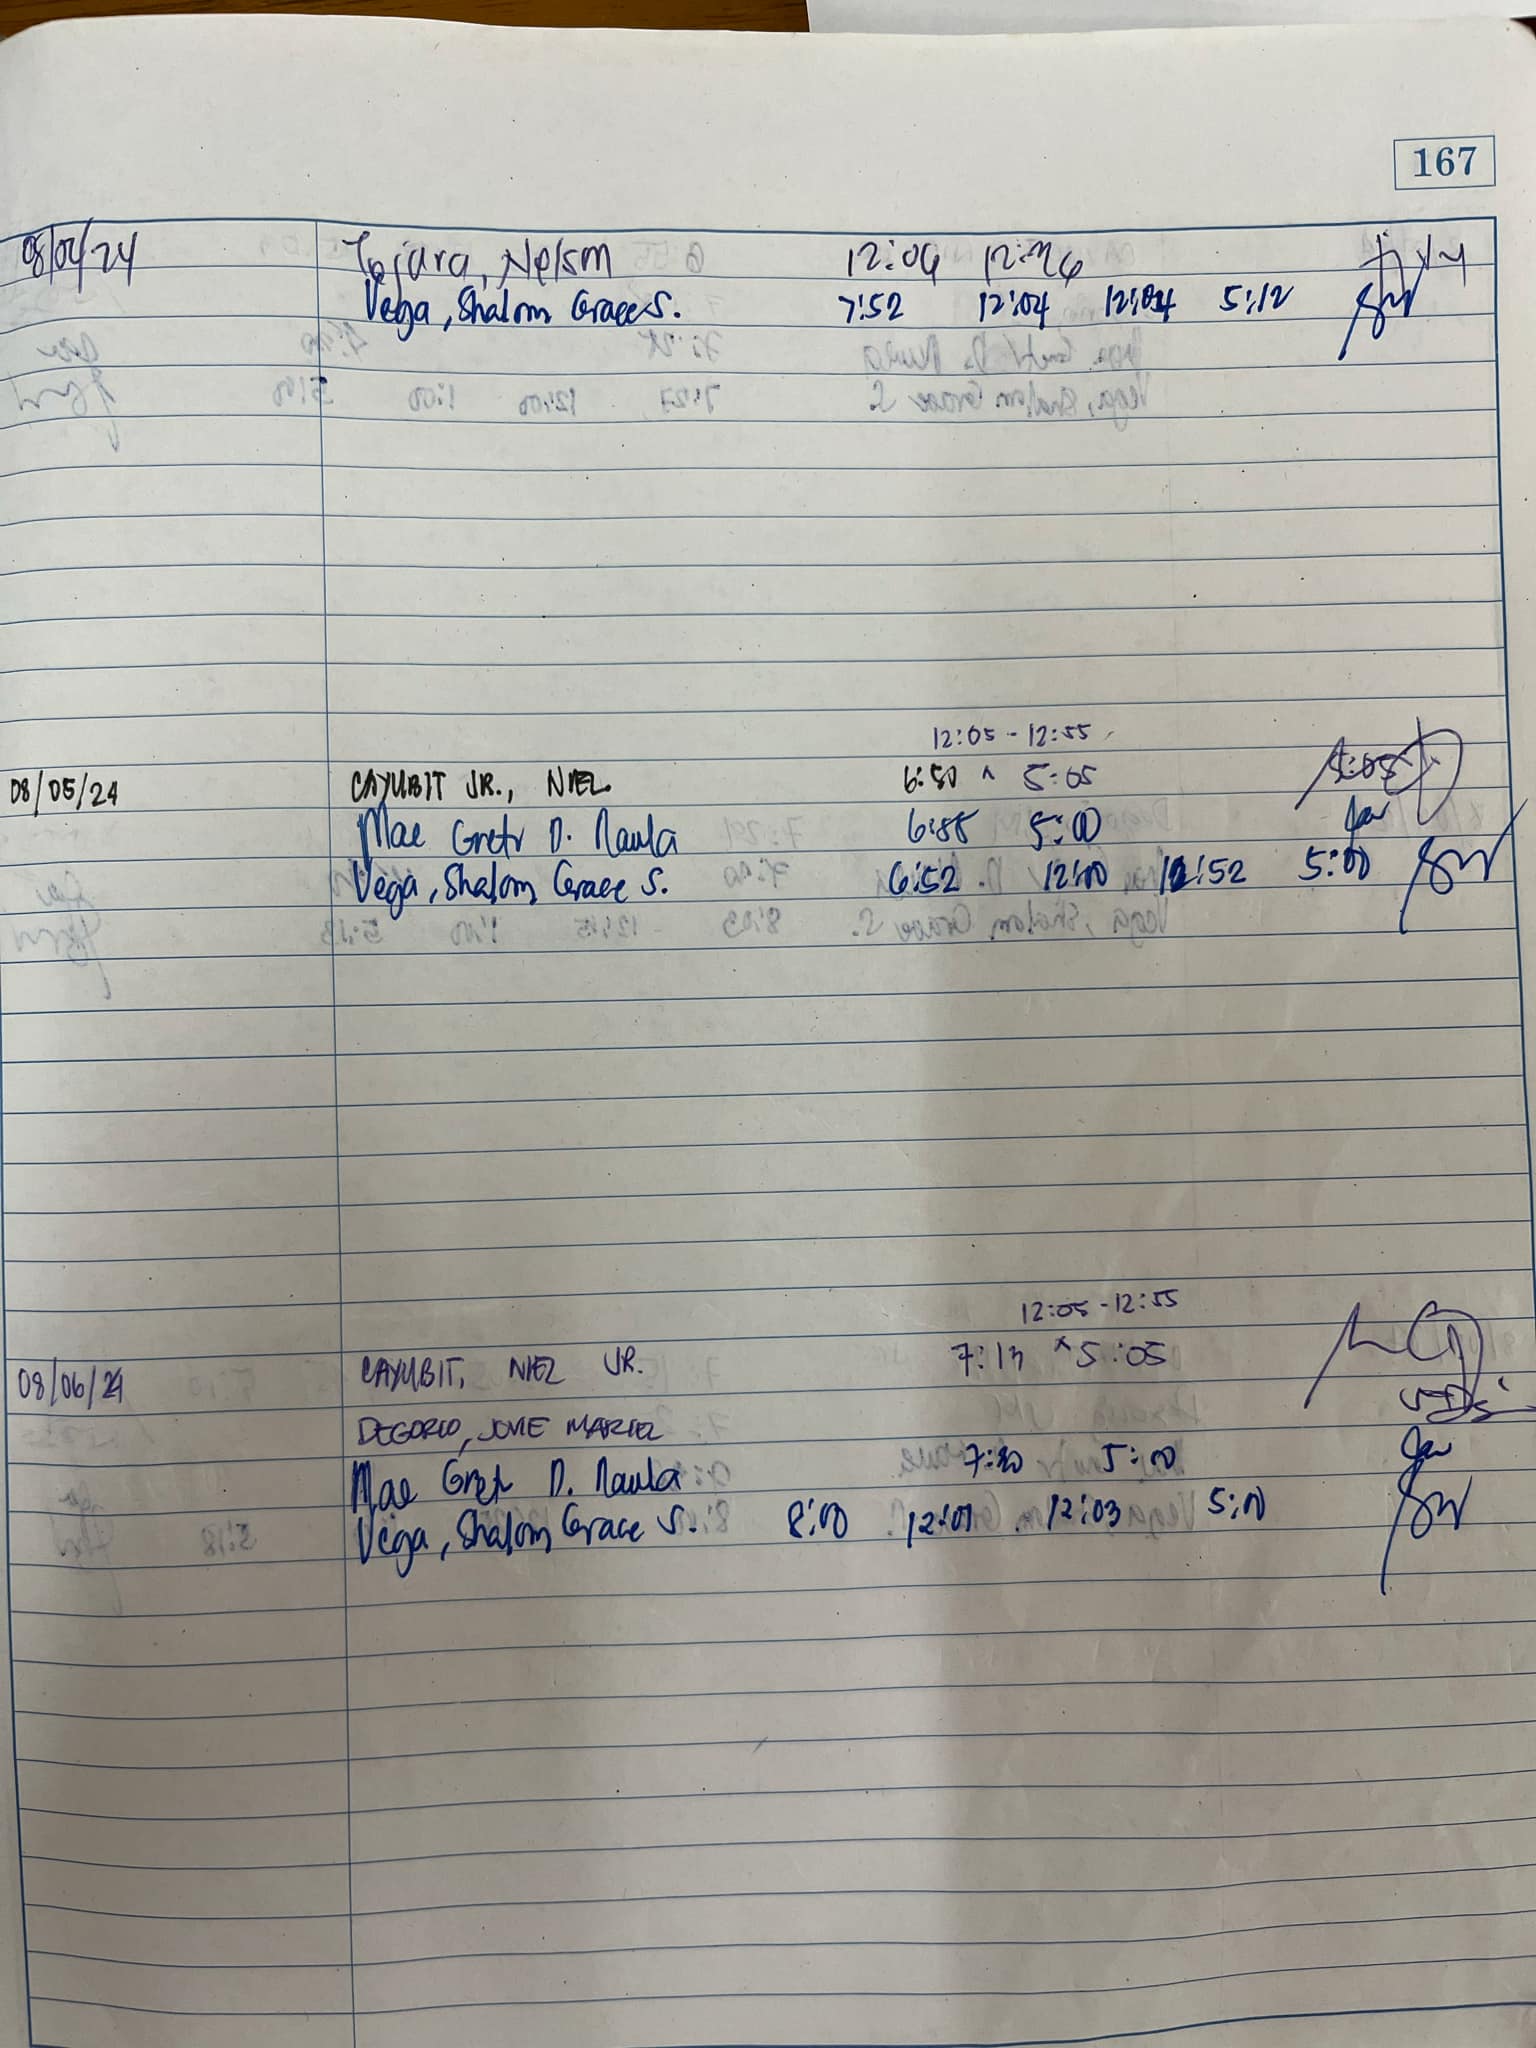 167
08/04/24 Tajara, Nelson 12:04
Vega, Shalom Grace S. 7:52 12:04 12:04 5:12
12:05 - 12:55
08/05/24 CAYUBIT JR., NIEL 6:50 ^ 5:05 5:05
Mae Gretr D. Naula 6:55 5:00
Vega, Shalom Grace S. 6:52 12:00 12:52 5:00
12:05 - 12:55
08/06/24 CAYUBIT, NIEL JR. 7:13 ^ 5:05
DEGORIO, JOVIE MARIEL
Mae Gretr D. Naula 5:00
Vega, Shalom Grace S. 8:00 12:01 12:03 5:00